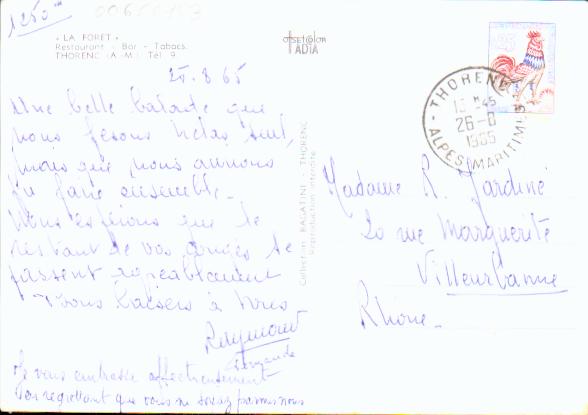 1250
« LA FORET »
Restaurant - Bar - Tabacs.
THORENC (A.-M.) Tél. 9
offset@lon
ADIA
25
THORENC
13 H 45
26-8
1965
ALPES MARITIMES
25.8.65
Une belle balade que
nous fesons hélas seul,
mais que nous aurions
pu faire ensemble.
Nous espérons que le
restant de vos congés se
passent agréablement
bons baisers à tous
Raymond
Fernande
Je vous embrasse affectueusement
en regrettant que vous ne soyez parmi nous
Collection BAGATINI - THORENC
Reproduction interdite
Madame R. Jardiné
20 rue Marguerite
Villeurbanne
Rhône